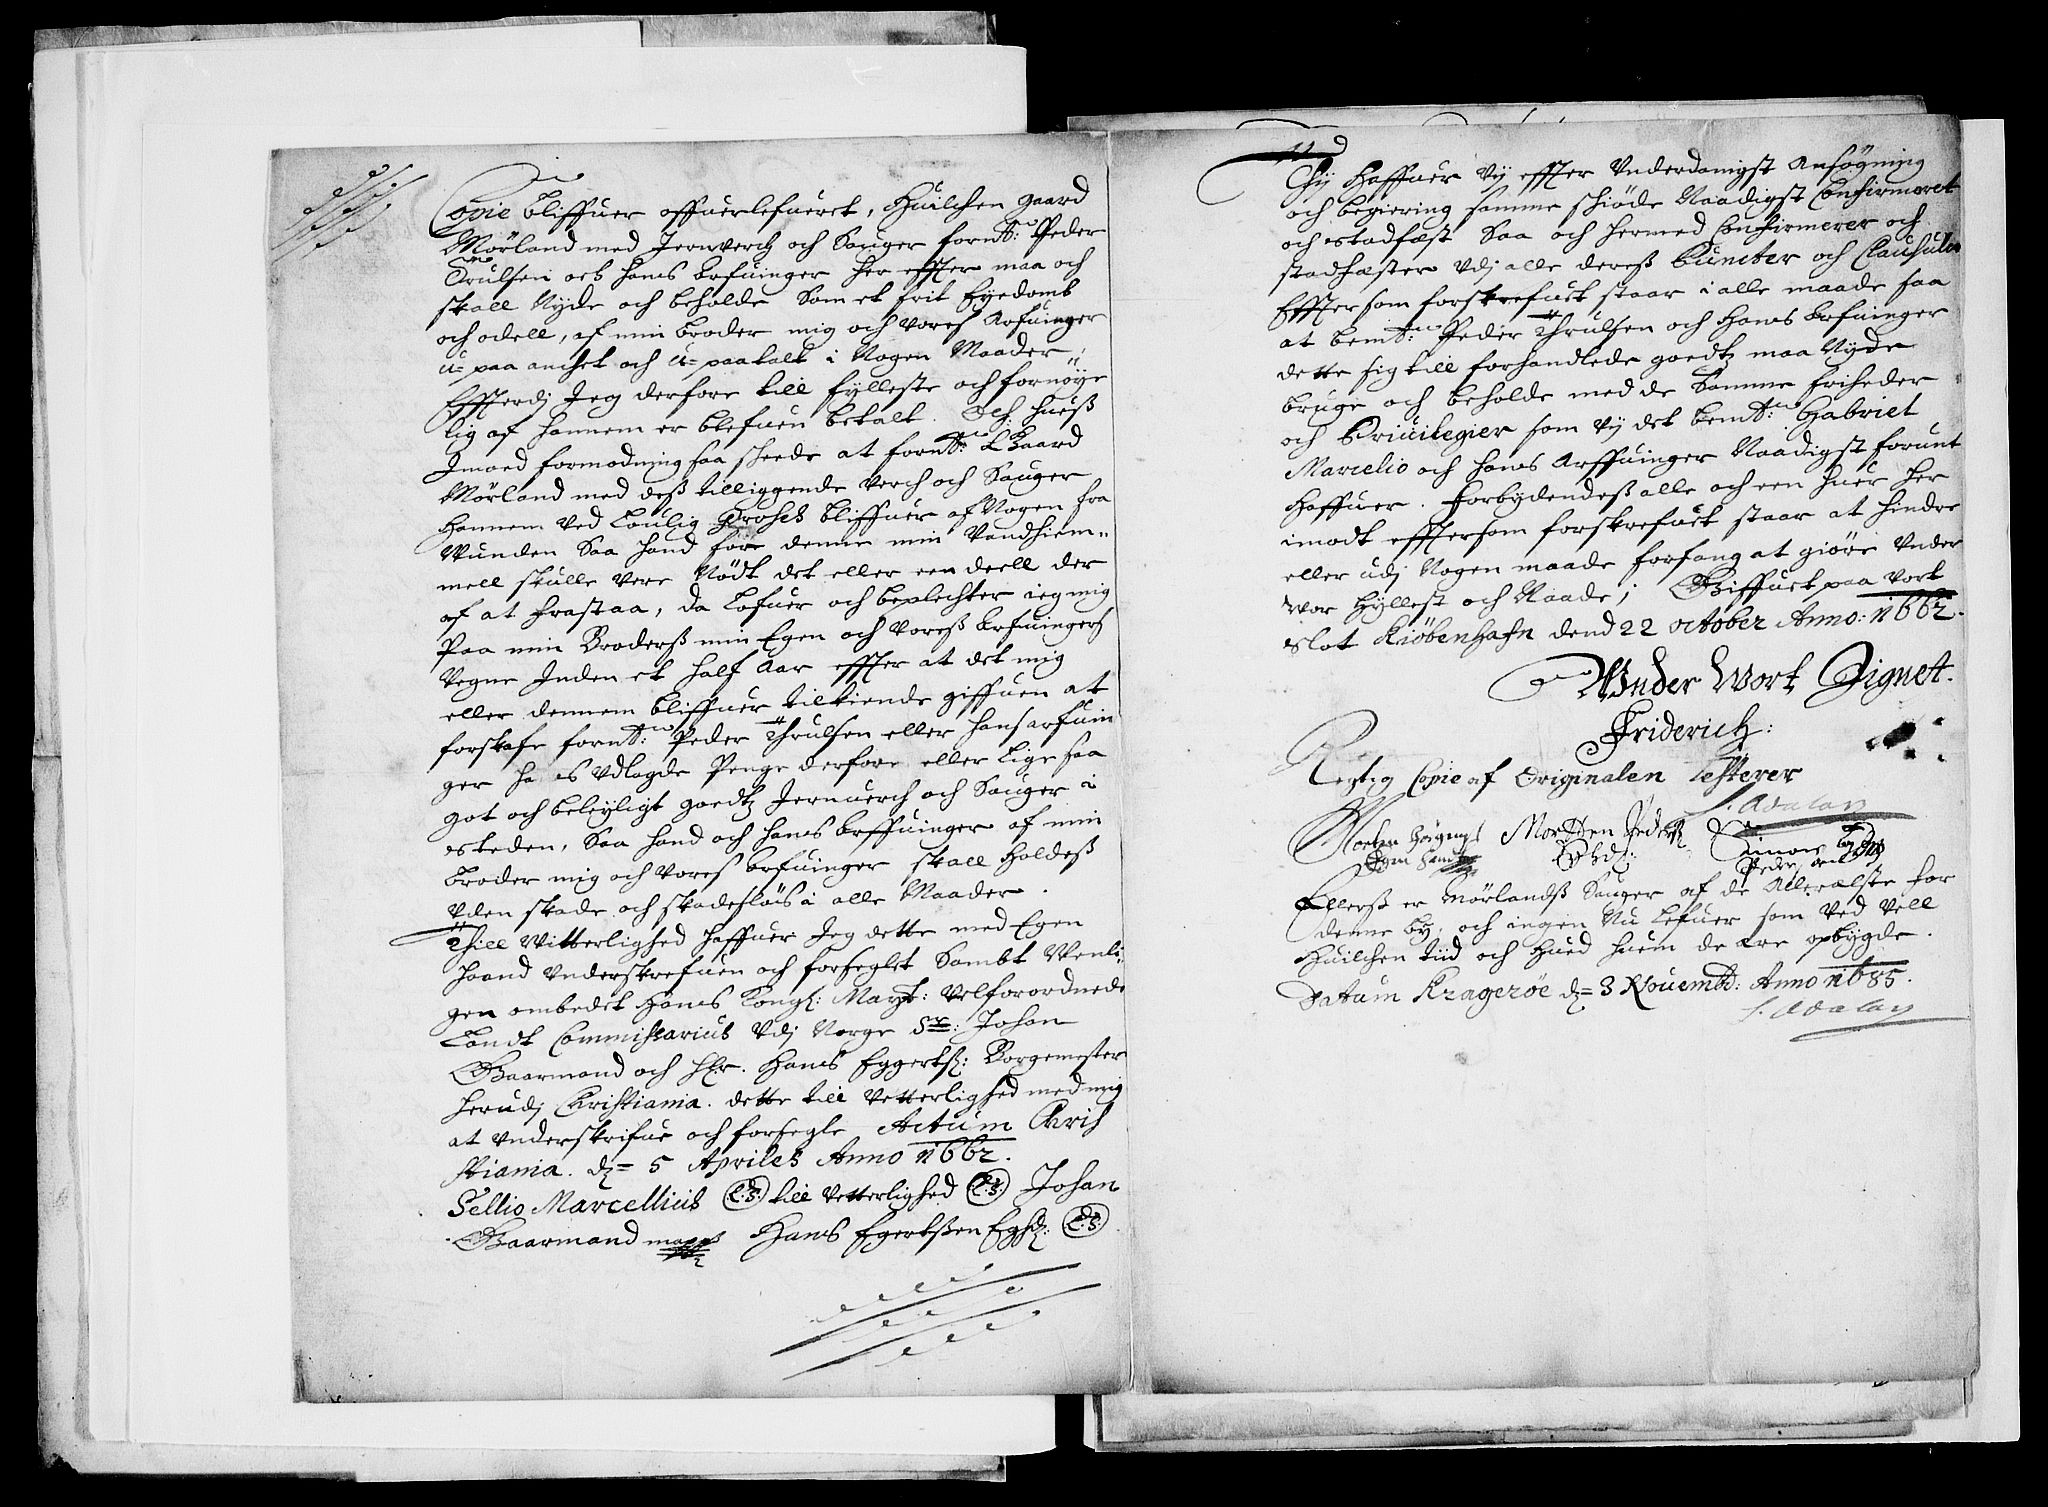 Copie bliffuer offuerlefueret, Huilchen gaard
Mörland med Jernverch och Sauger fornt: Peder
Trulsen och hans Arfuinger her effter maa och
skall Nyde och beholde Som et frit Eyedomb
och odell, af min broder mig och vores Arfuinger
u-paa anchet och u-paatalt i Nogen Maader
Effterdj Jeg derfore till fylleste och fornöye
lig af hannem er blefuen betalt. Och hueß
Imoed formodning saa skeede at fornt: Gaard
Mörland med deß tilliggende verch och Sauger
hannem ved Loulig Proses bliffuer af Nogen fra
Wunden Saa hand fore denne min Vandhiem-
mell skulle vere Nödt det eller een deell der
af at frastaa, da Lofuer och beplechter ieg mig
Paa min Broderß min Egen och Voreß Arfuingers
Vegne Inden et half Aar effter at det mig
eller dennem bliffuer tilkiende giffuen at
forskafe fornt: Peder Thrulsen eller hans arfuin
ger hans Vdlagde Penge derfore eller Lige saa
got och beleyligt goedtz Jernuerch och Sauger i
steden, Saa hand och hans Arffuinger af min
broder mig och vores Arfuinger skall holdeß
Vden skade och skadeslöis i alle Maader.
Thill Witterlighed haffuer Jeg dette med Egen
haand Vnderskrefuen och forseglet Sambt Wenli-
gen ombedet Hans Kongl: Mayt: Velforordnede
Landt Commissarius Vdj Norge Sr: Johan
Gaarmand och Hr. Hans Eggertß: Borgemester
herudj Christiania. dette till Vetterlighed med mig
at Vnderskrifue och forsegle Actum Chris
tiania. d= 5 Apriles Anno 1662.
Sellio Marcellius L.S. till Vetterlighed L.S. Johan
Gaarmand Hans Egertßen Eghd: L.S.
Thj Haffuer Vij effter Vnderdanigst Ansögning
och begiering samme skiöde Naadigst Confirmeret
och stadfæst Saa och hermed Confirmerer och
stadfæster Vdj alle dereß Puncter och Clausuler
Effter som forskrefuet staar i alle maade saa
at bemt: Peder Thrulsen och Hans Arfuinger
dette sig till forhandlede goedtz maa Nyde
bruge och beholde med de Samme friheder
och Priuilegier som vij det bemt: Gabriel
Marcelio och hans Arffuinger Naadigst forunt
haffuer. Forbydendeß alle och een huer her
imodt efftersom forskrefuet staar at hindre
eller udj Nogen maade forfang at giöre Vnder
Wor Hyllest och Naade; Giffuet paa Vort
Slot Kiöbenhafn dend 22 october Anno: 1662.
Under Wort Signet.
Friderich:
Regtig Copie af Originalen Testerer
J. Adalan
Morten Pederß
Ellerß er Mörlandß Sauger af de Allerælste for
denne by, och ingen Nu Lefuer som Ved Vell
Huilchen tiid och Hued huem de ere opbygde.
Datum Krageröe d= 3 Nouembr: Anno 1685.
J. Adalan